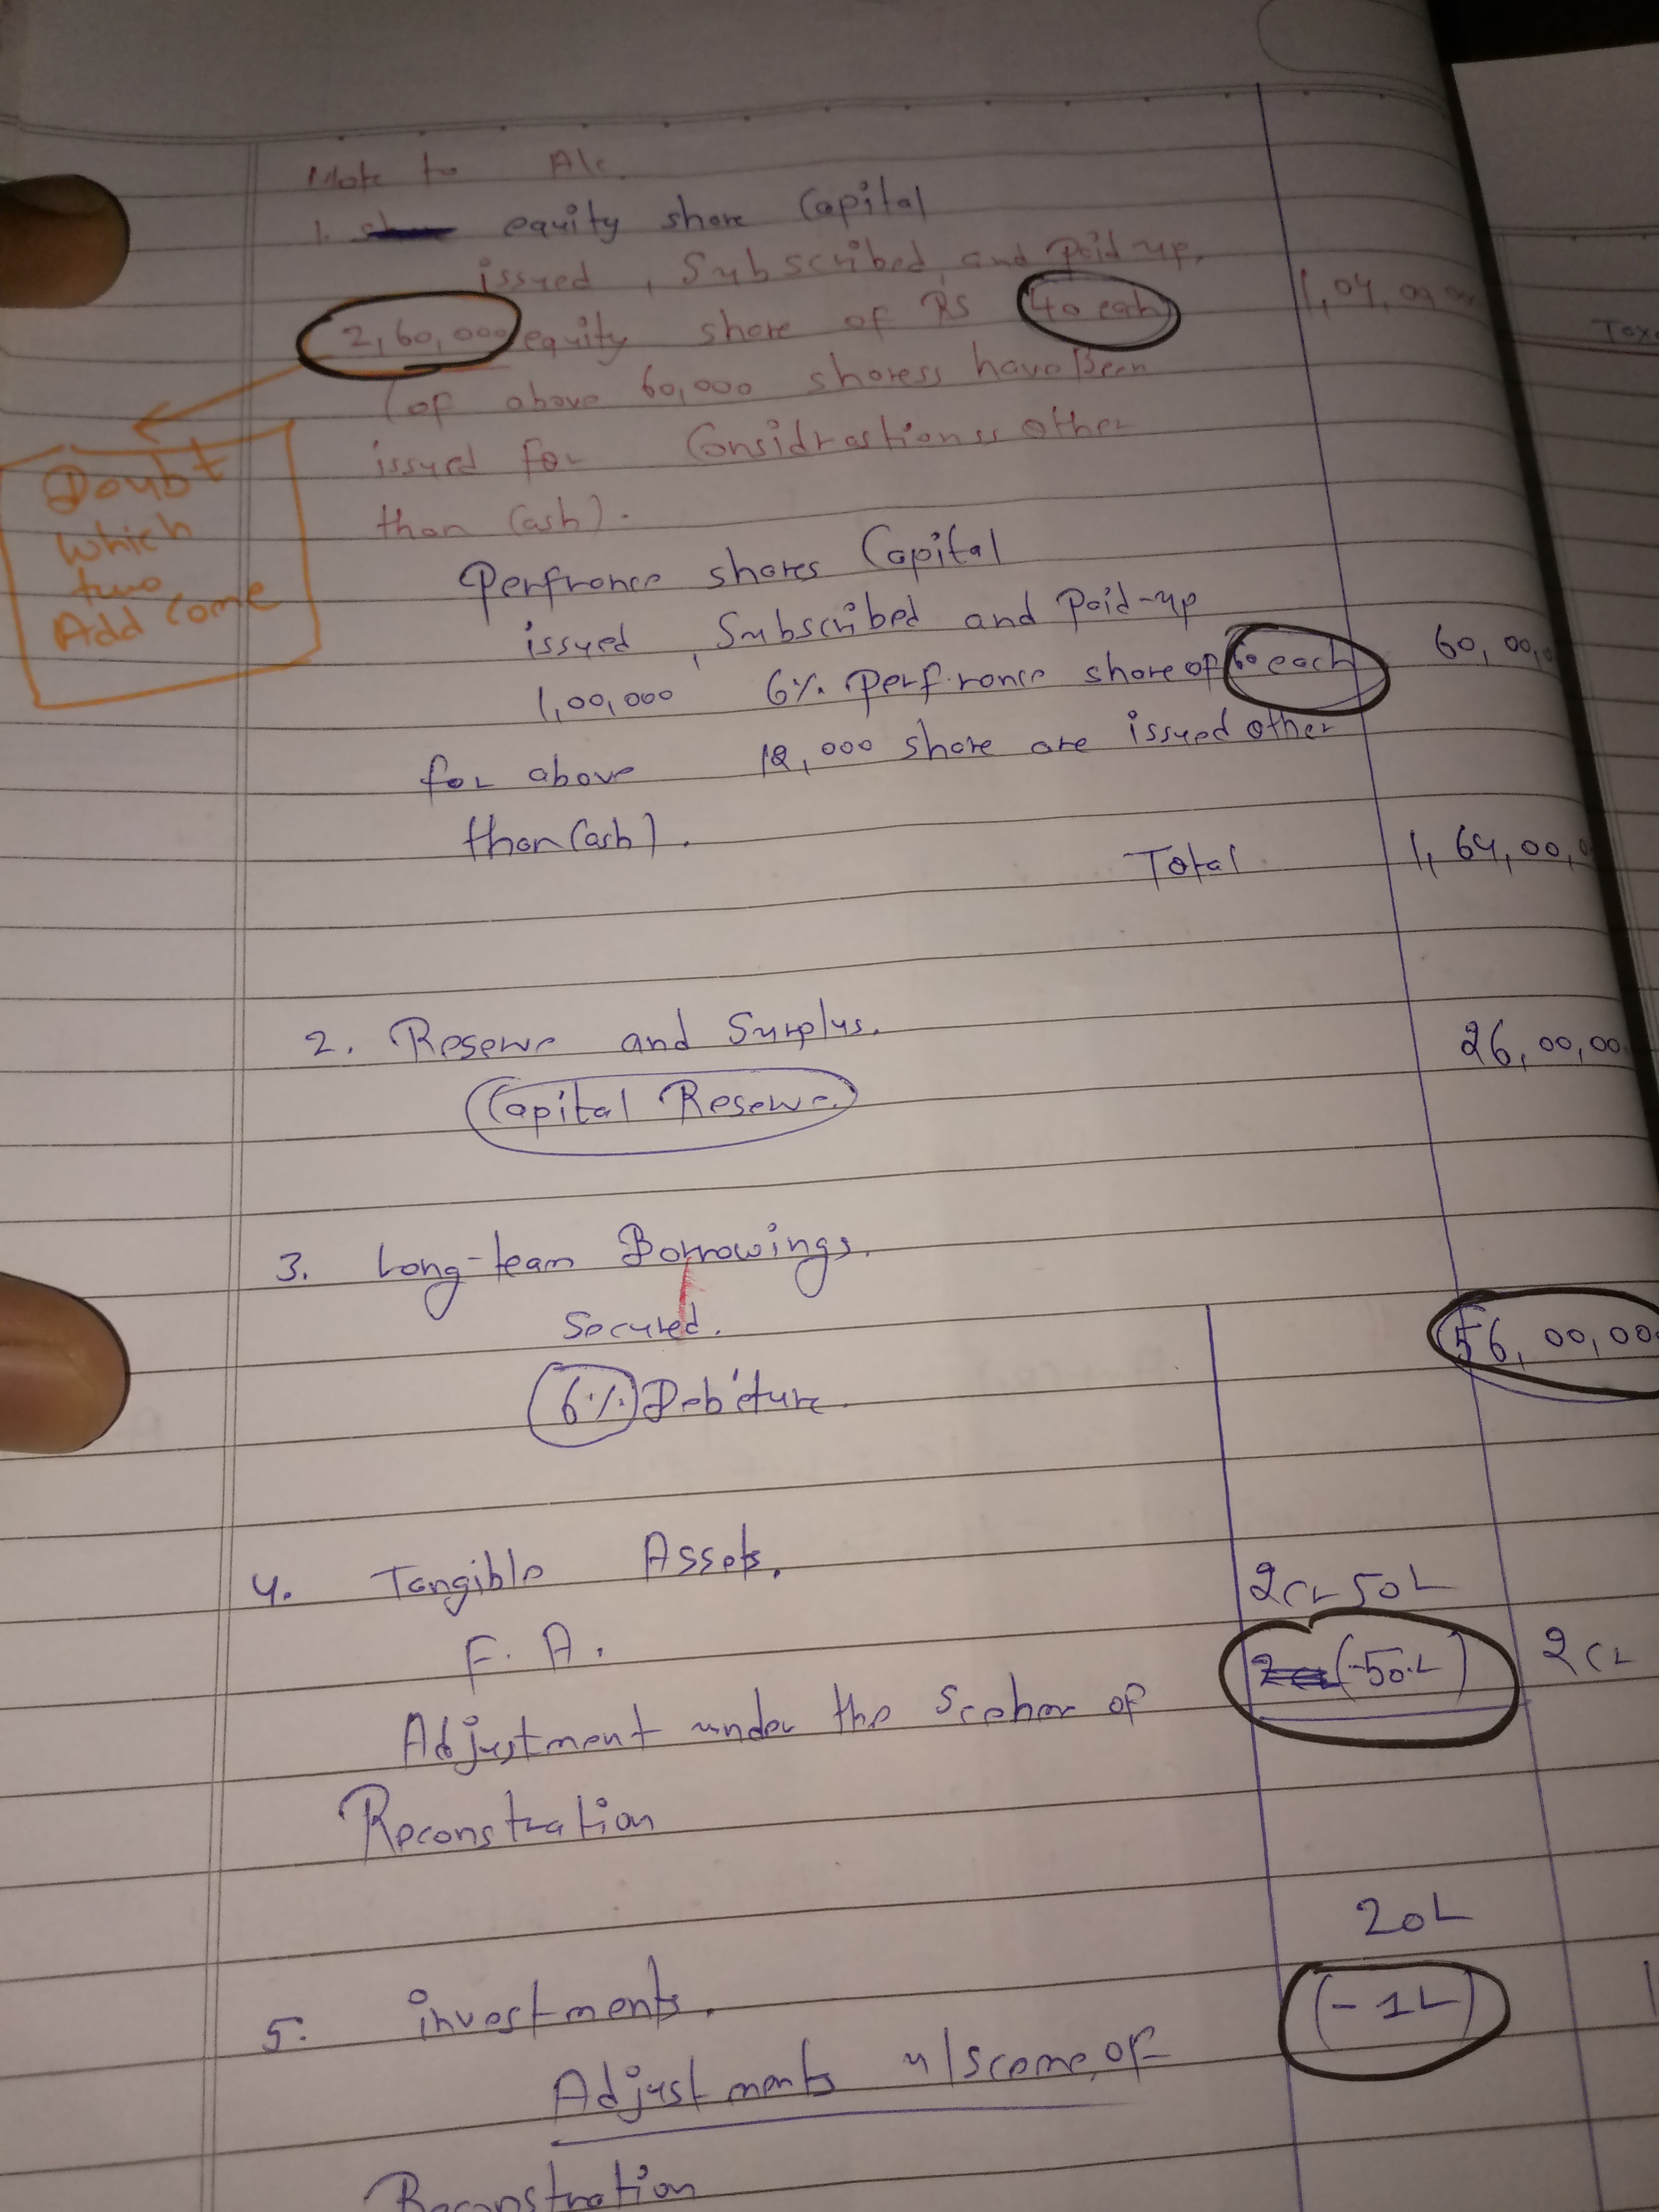 Note to A/c.
1. equity share Capital
issued, Subscribed and Paid-up.
2,60,000 equity share of RS 40 each 1,04,00,000
(of above 60,000 sharess have Been
issued for Considrastionss other
than Cash).
Doubt
which
two
Add come
Perfrence shares Capital
issued, Subscribed and Paid-up
1,00,000 6% Perf.rence share of 60 each 60,00,0
for above 12,000 share are issued other
than Cash).
Total 1,64,00,0
2. Reserve and Surplus. 26,00,00
Capital Reserve
3. Long-team Borrowings.
Secured. 56,00,00
6% Deb'eture.
4. Tangible Assets.
F.A. 2CL50L
Adjustment under the of (-50.L) 2CL
Reconstration
5. investments. 20L
Adjustments u/sceme,of (-1L)
Reconstration